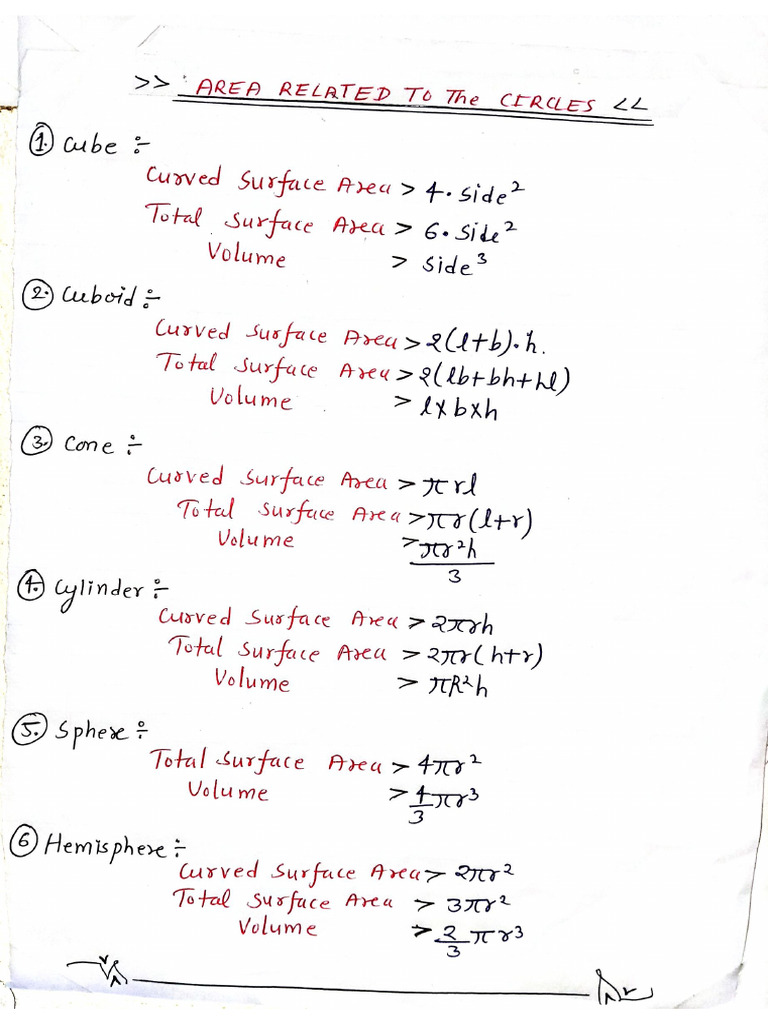 >> AREA RELATED TO The CIRCLES <<
1. Cube ÷
Curved Surface Area > 4.side²
Total Surface Area > 6.side²
Volume > side³
2. Cuboid ÷
Curved Surface Area > 2(l+b).h.
Total Surface Area > 2(lb+bh+hl)
Volume > l×b×h
3. Cone ÷
Curved Surface Area > πrl
Total Surface Area > πr(l+r)
Volume > πr²h/3
4. Cylinder ÷
Curved Surface Area > 2πrh
Total Surface Area > 2πr(h+r)
Volume > πR²h
5. Sphere ÷
Total Surface Area > 4πr²
Volume > 4/3 πr³
6 Hemisphere ÷
Curved Surface Area > 2πr²
Total Surface Area > 3πr²
Volume > 2/3 πr³